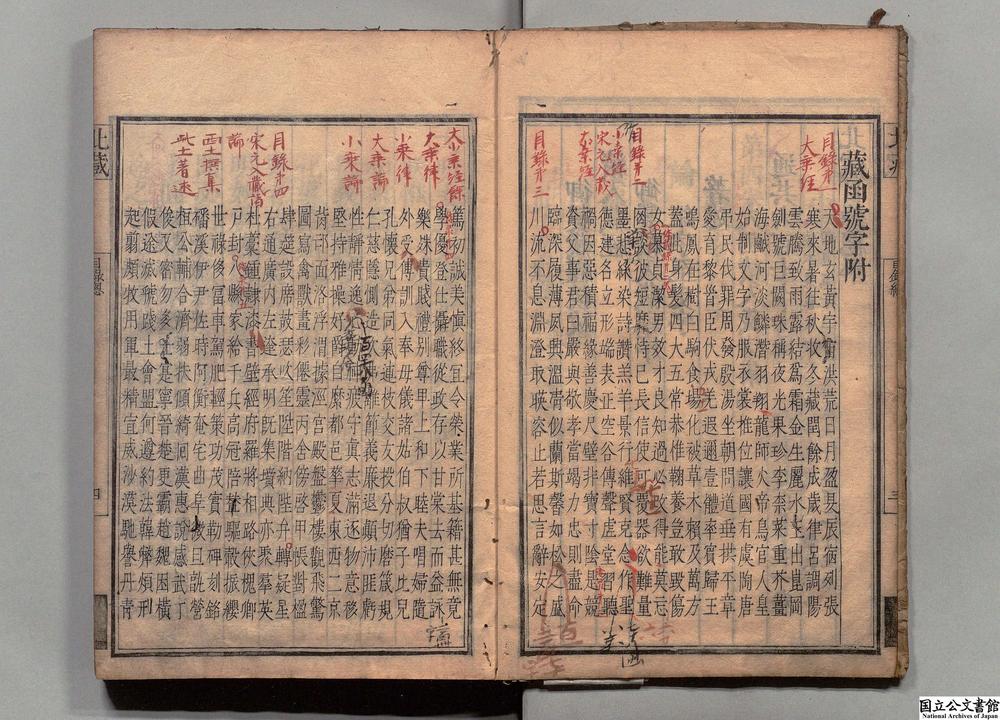 北藏函號字附
目錄第一
大乘經
天地玄黃宇宙洪荒日月盈昃辰宿列張
寒來暑往秋收冬藏閏餘成歲律呂調陽
雲騰致雨露結為霜金生麗水玉出崑岡
劍號巨闕珠稱夜光果珍李柰菜重芥薑
海鹹河淡鱗潛羽翔龍師火帝鳥官人皇
始制文字乃服衣裳推位讓國有虞陶唐
弔民伐罪周發殷湯坐朝問道垂拱平章
愛育黎首臣伏戎羌遐邇壹體率賓歸王
鳴鳳在樹白駒食場化被草木賴及萬方
蓋此身髮四大五常恭惟鞠養豈敢毀傷
目錄第二
小乘經
宋元入藏
大乘經
女慕貞潔男效才良知過必改得能莫忘
罔談彼短靡恃己長信使可覆器欲難量
墨悲絲染詩讚羔羊景行維賢克念作聖
德建名立形端表正空谷傳聲虛堂習聽
禍因惡積福緣善慶尺璧非寶寸陰是競
資父事君曰嚴與敬孝當竭力忠則盡命
臨深履薄夙興溫凊似蘭斯馨如松之盛
目錄第三
川流不息淵澄取映容止若思言辭安定
大小乘經餘
大乘律
小乘律
大乘論
小乘論
篤初誠美慎終宜令榮業所基籍甚無竟
學優登仕攝職從政存以甘棠去而益詠
樂殊貴賤禮別尊卑上和下睦夫唱婦隨
外受傅訓入奉母儀諸姑伯叔猶子比兒
孔懷兄弟同氣連枝交友投分切磨箴規
仁慈隱惻造次弗離節義廉退顛沛匪虧
性靜情逸心動神疲守真志滿逐物意移
堅持雅操好爵自縻都邑華夏東西二京
背邙面洛浮渭據涇宮殿盤鬱樓觀飛驚
圖寫禽獸畫彩僊靈丙舍傍啓甲帳對楹
肆筵設席鼓瑟吹笙陞階納陛弁轉疑星
目錄第四
宋元入藏諸
論
西土撰集
此土著述
右通廣內左達承明既集墳典亦聚羣英
杜藁鍾隸漆書壁經府羅將相路俠槐卿
戶封八縣家給千兵高冠陪輦驅轂振纓
世祿侈富車駕肥輕策功茂實勒碑刻銘
磻溪伊尹佐時阿衡奄宅曲阜微旦孰營
桓公輔合濟弱扶傾綺迴漢惠說感武丁
俊乂密勿多士寔寧晉楚更霸趙魏困橫
假途滅虢踐土會盟何遵約法韓弊煩刑
起翦頗牧用軍最精宣威沙漠馳譽丹青
北藏
目錄總
四
国立公文書館
National Archives of Japan